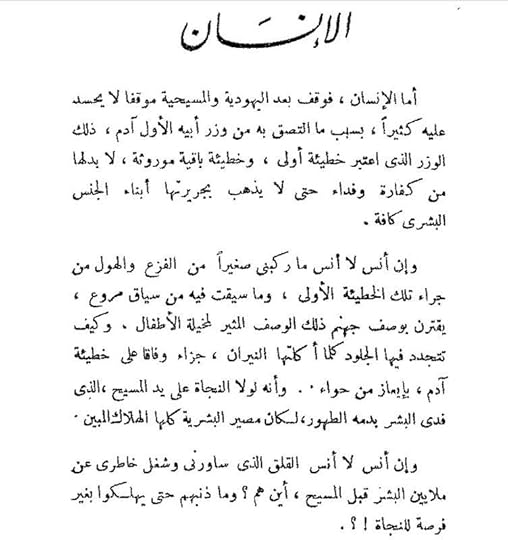 الإنسَان
أما الإنسان ، فوقف بعد اليهودية والمسيحية موقفا لا يحسد
عليه كثيراً ، بسبب ما التصق به من وزر أبيه الأول آدم ، ذلك
الوزر الذى اعتبر خطيئة أولى ، وخطيئة باقية موروثة ، لا بدلها
من كفارة وفداء حتى لا يذهب بجريرتها أبناء الجنس
البشرى كافة .
وإن أنس لا أنس ما ركبنى صغيراً من الفزع والهول من
جراء تلك الخطيئة الأولى ، وما سيقت فيه من سياق مروع ،
يقترن بوصف جهنم ذلك الوصف المثير لمخيلة الأطفال . وكيف
تتجدد فيها الجلود كلما أكلتها النيران ، جزاء وفاقا على خطيئة
آدم ، بإيعاز من حواء . . وأنه لولا النجاة على يد المسيح ،الذى
فدى البشر بدمه الطهور،لكان مصير البشرية كلها الهلاك المبين .
وإن أنس لا أنس القلق الذى ساورنى وشغل خاطرى عن
ملايين البشر قبل المسيح ، أين هم ؟ وما ذنبهم حتى يهلكوا بغير
فرصة للنجاة ! ؟ .